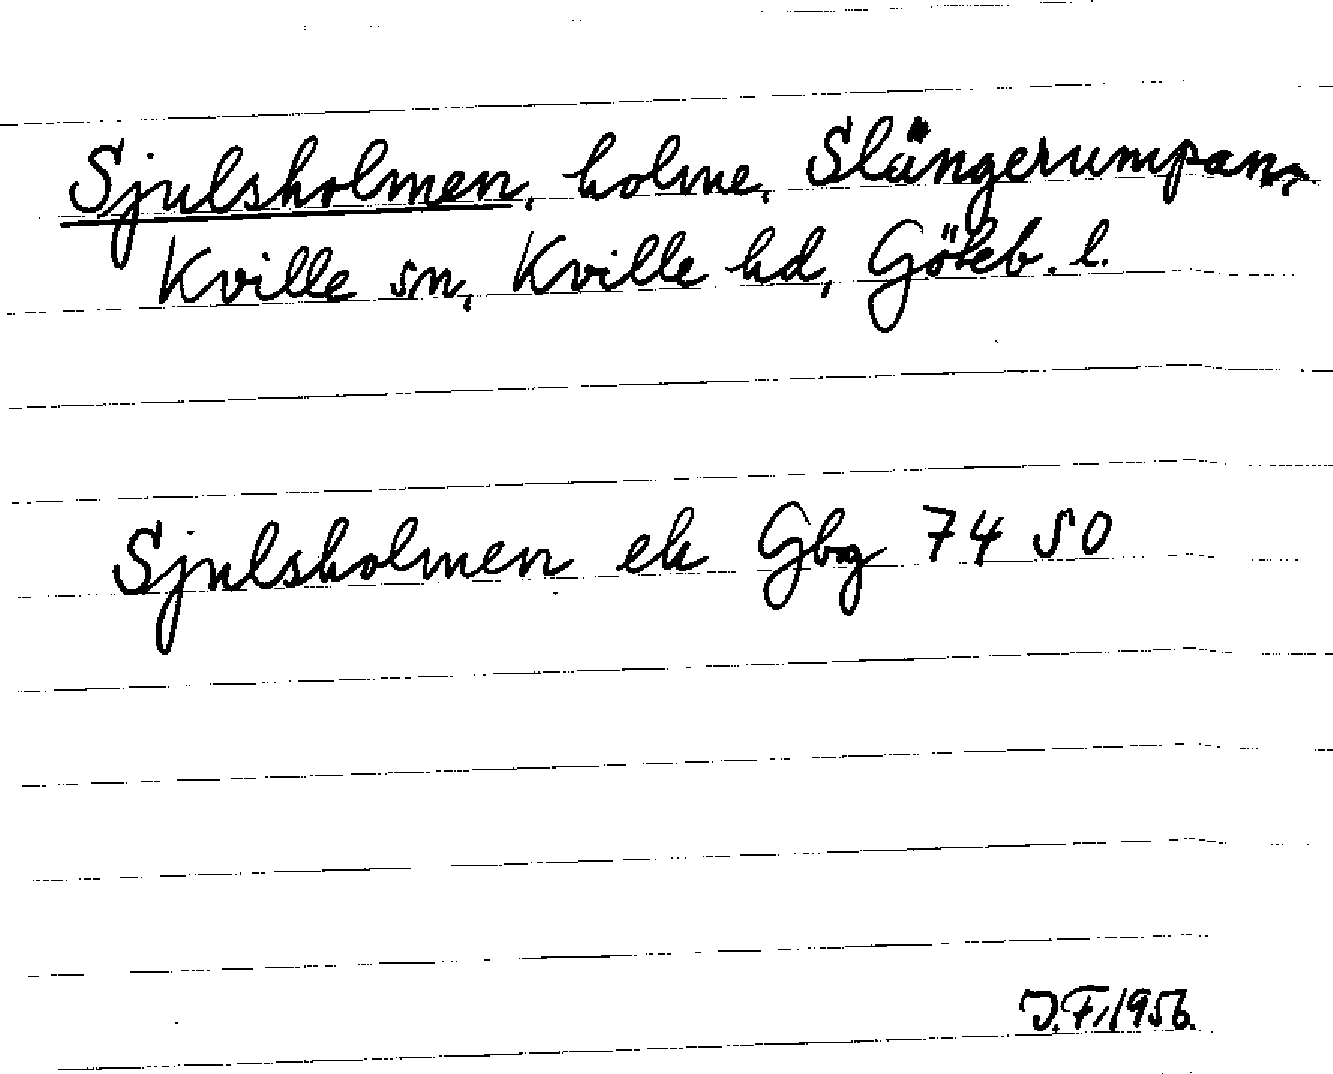 Sjulsholmen, holme, Slängerumpan,
Kville sn, Kville hd, Göteb. l.
Sjulsholmen ek Gbg 74 SO
J.F. 1956.